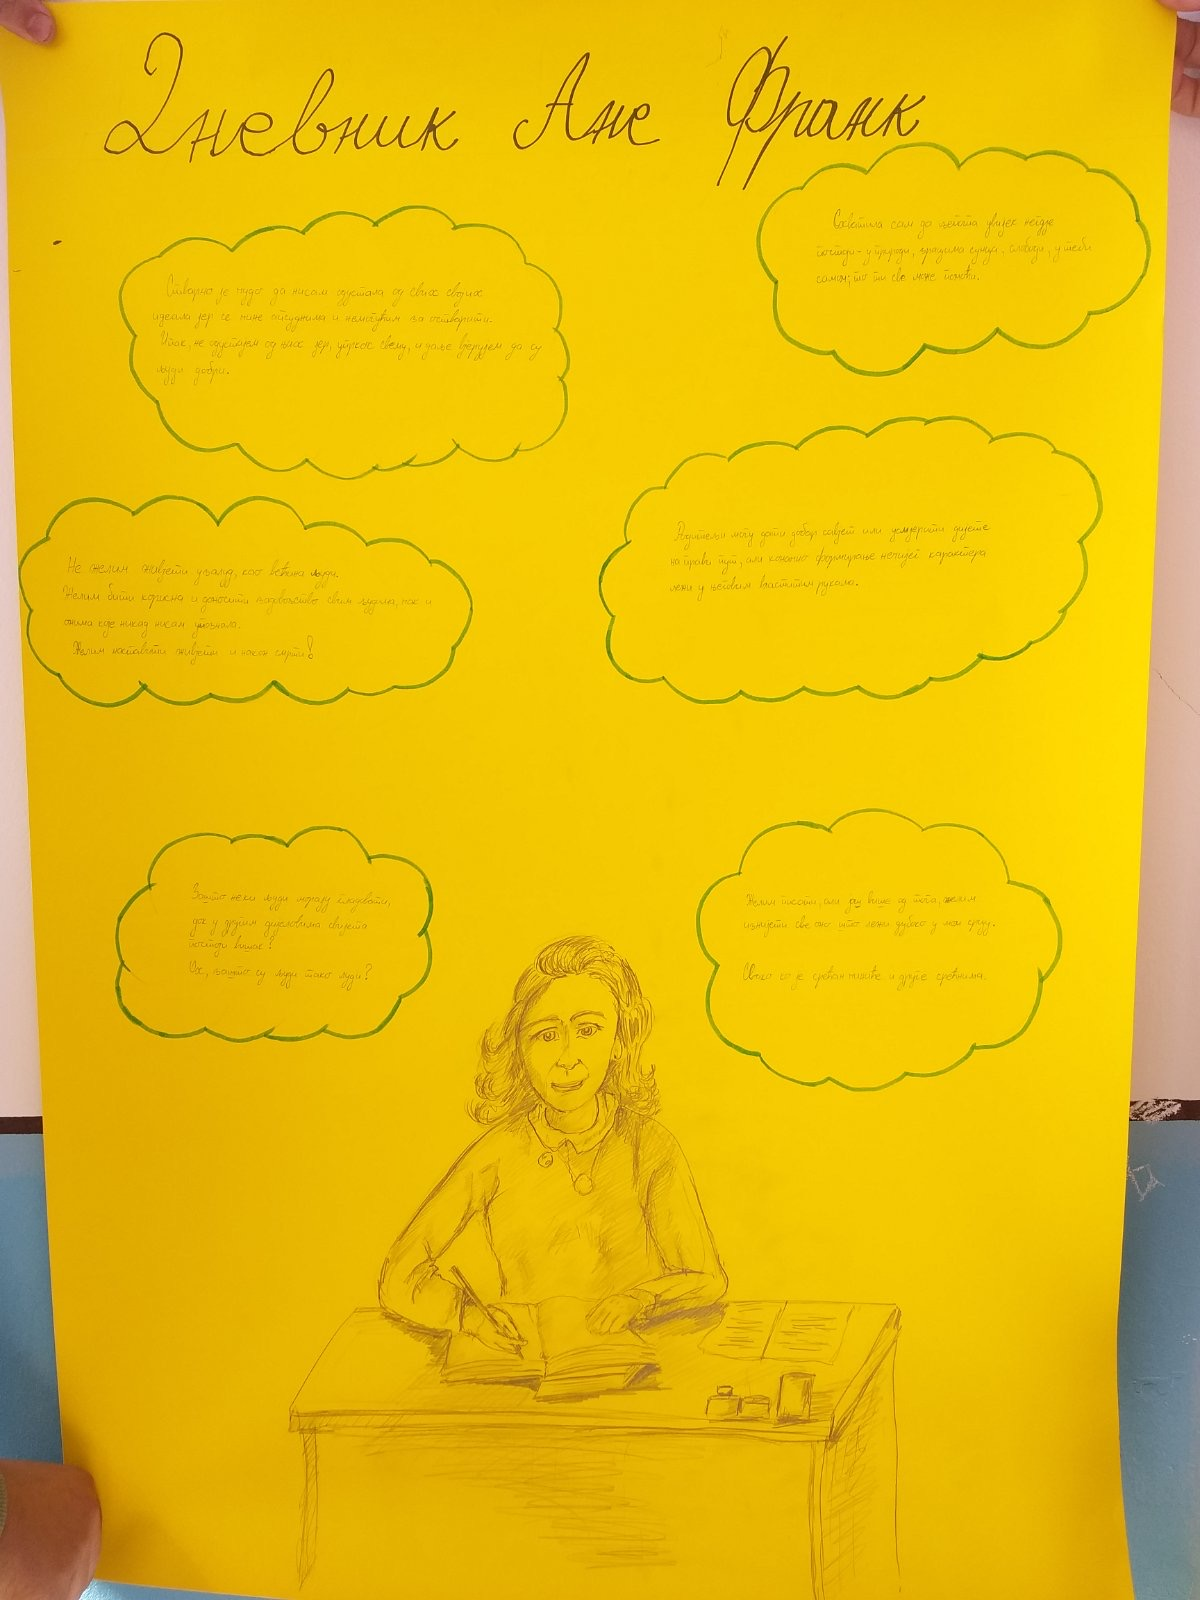 Дневник Ане Франк
Стварно је чудо да нисам одустала од свих својих
идеала јер се чине апсурдима и немогућим за остварити.
Ипак, не одустајем од њих јер, упркос свему, и даље вјерујем да су
људи добри.
Схватила сам да љепота увијек негдје
постоји - у природи, зрацима сунца, слободи, у теби
самом; то ти све може помоћи.
Не желим живјети узалуд, као већина људи.
Желим бити корисна и доносити задовољство свим људима, чак и
онима које никад нисам упознала.
Желим наставити живјети и након смрти!
Родитељи могу дати добар савјет или усмјерити дијете
на прави пут, али коначно формирање нечијег карактера
лежи у његовим властитим рукама.
Зашто неки људи морају гладовати,
док у другим дијеловима свијета
постоји вишак?
Ох, зашто су људи тако луди?
Желим писати, али још више од тога, желим
изнијети све оно што лежи дубоко у мом срцу.
Свако ко је срећан чиниће и друге срећнима.